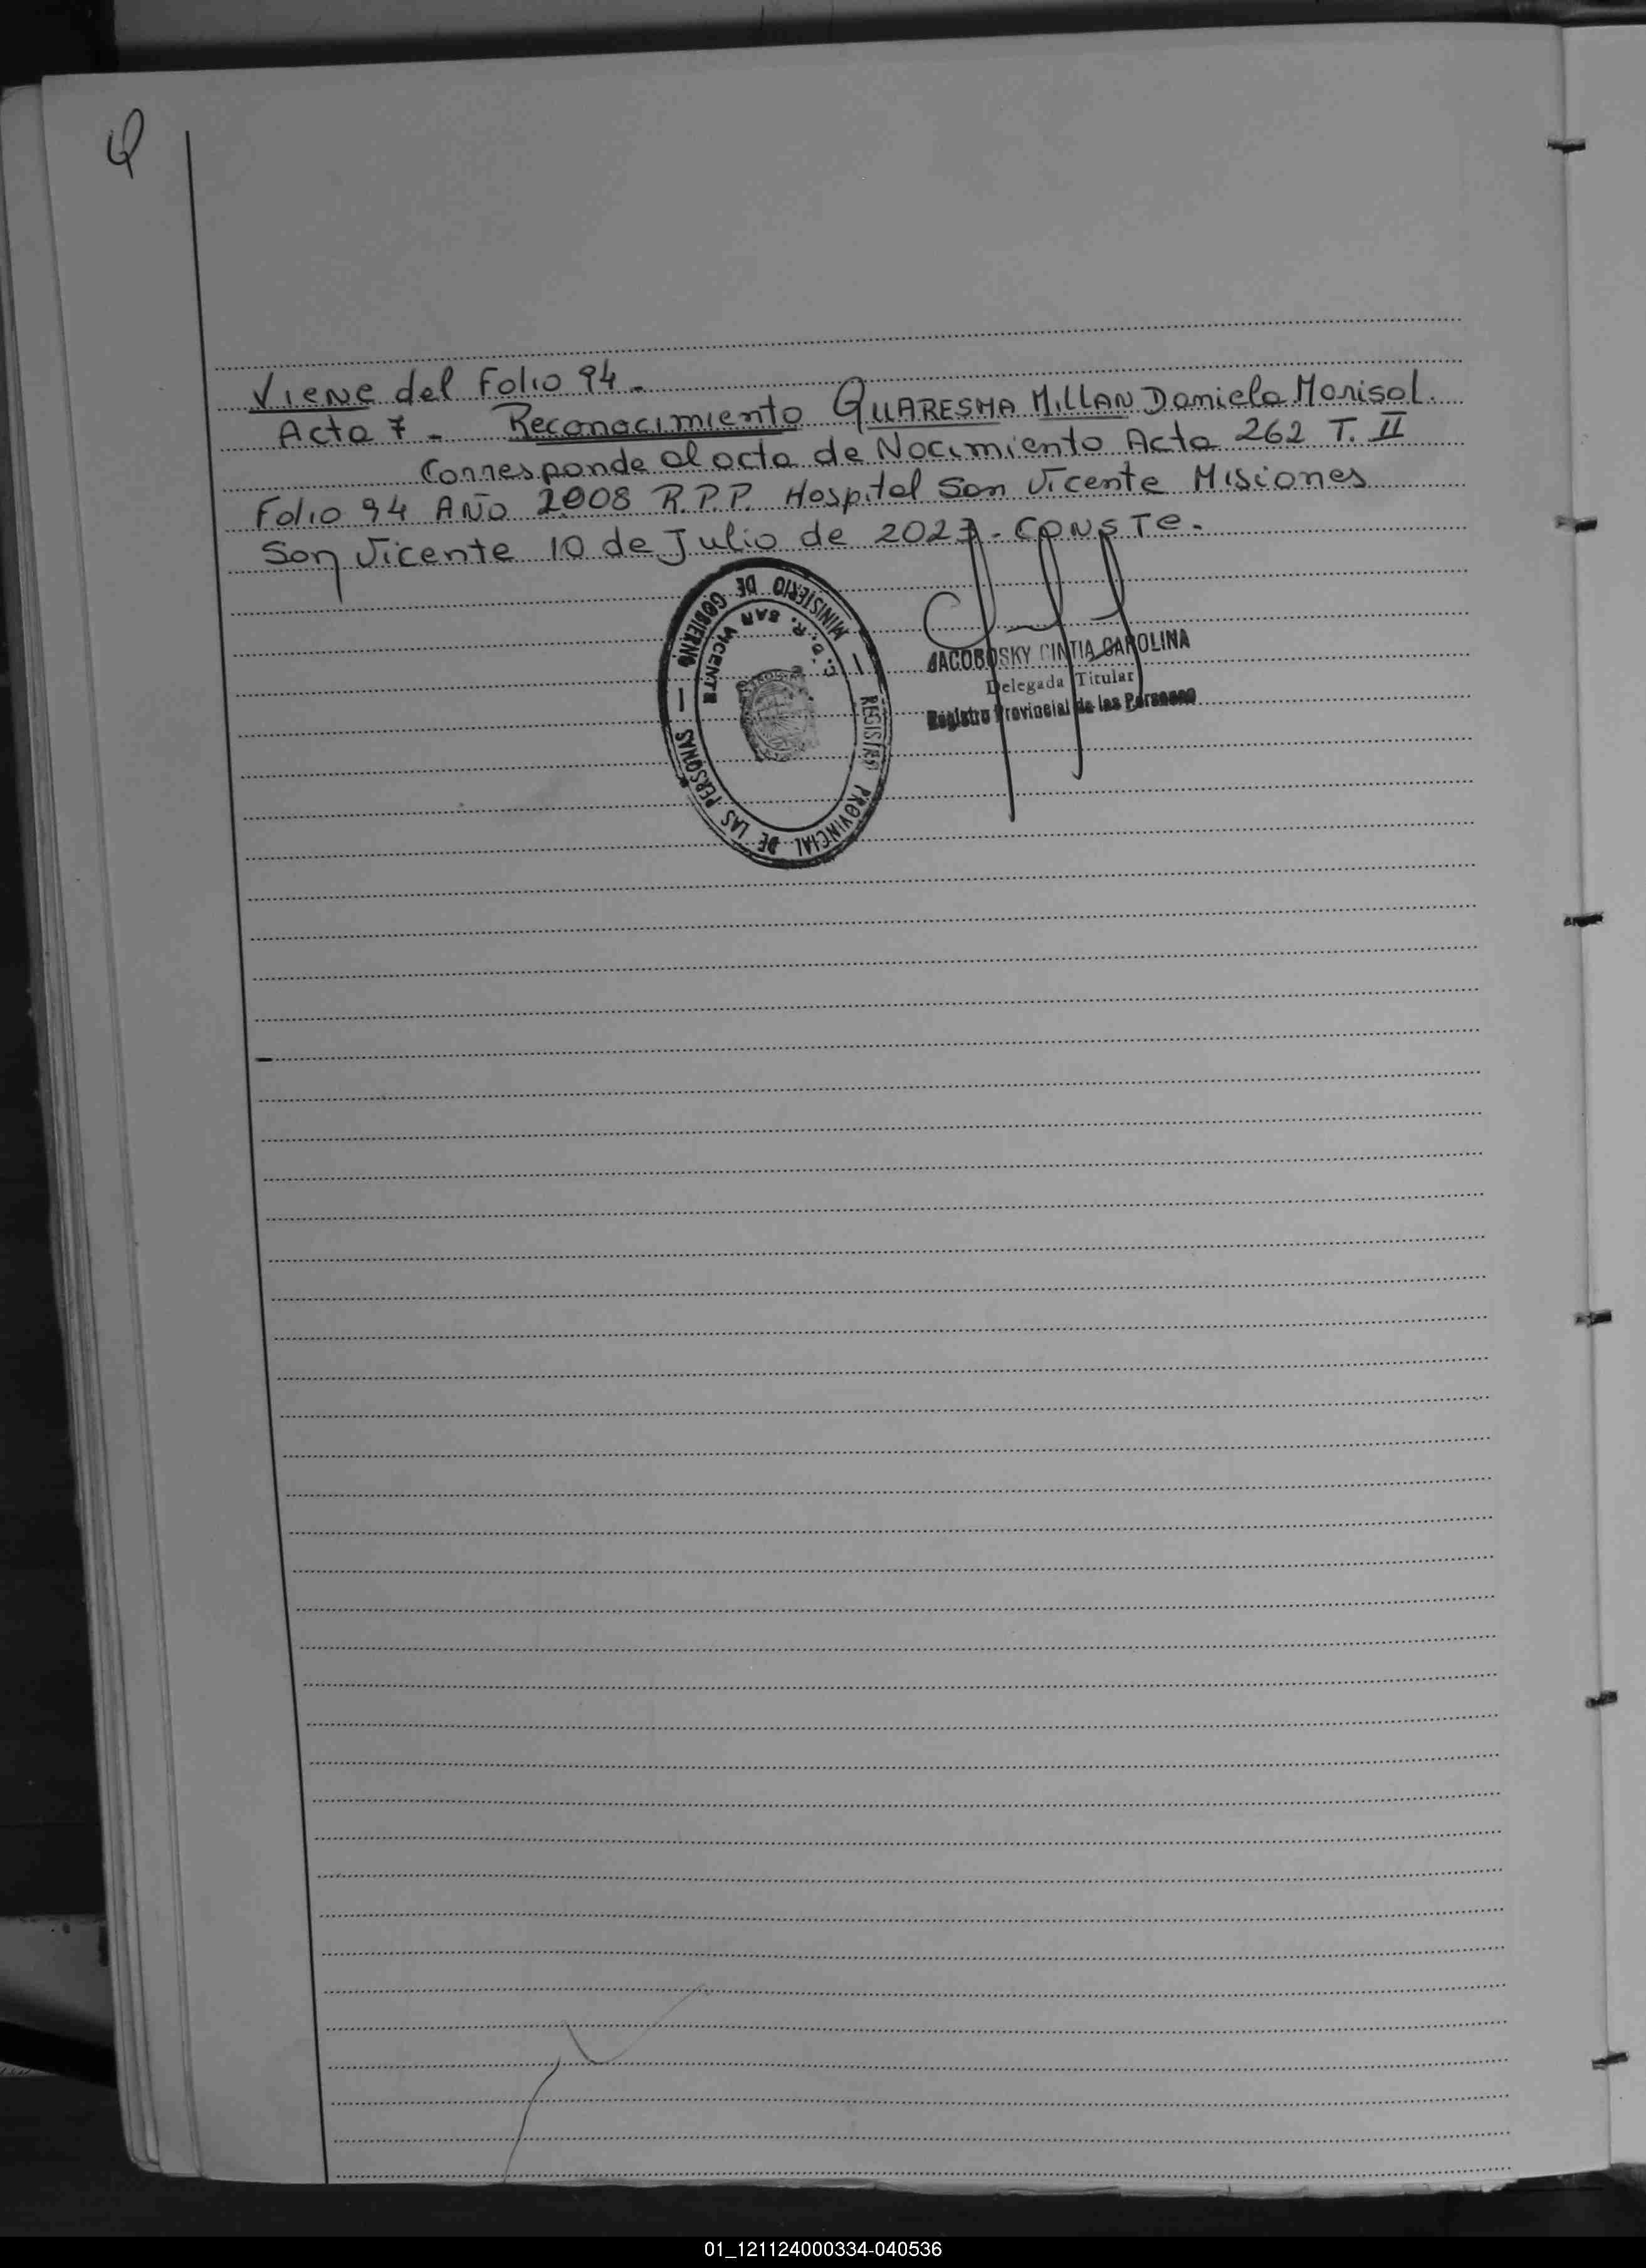 Viene del Folio 94.
Acta 7 - Reconocimiento QUARESMA MILLAN Daniela Marisol.
Corresponde al acta de Nacimiento Acta 262 T. II
Folio 94 Año 2008 R.P.P. Hospital San Vicente Misiones
San Vicente 10 de Julio de 2023 - CONSTE.
MINISTERIO DE GOBIERNO
REGISTRO PROVINCIAL DE LAS PERSONAS
SAN VICENTE
JACOBOSKY CINTIA CAROLINA
Delegada Titular
Registro Provincial de las Personas
01_121124000334-040536